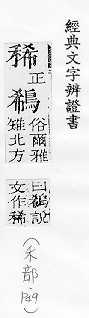 經典文字辨證書
稀
正
鵗
俗爾雅
雉北方
曰鵗說
文作稀
(禾部.149)